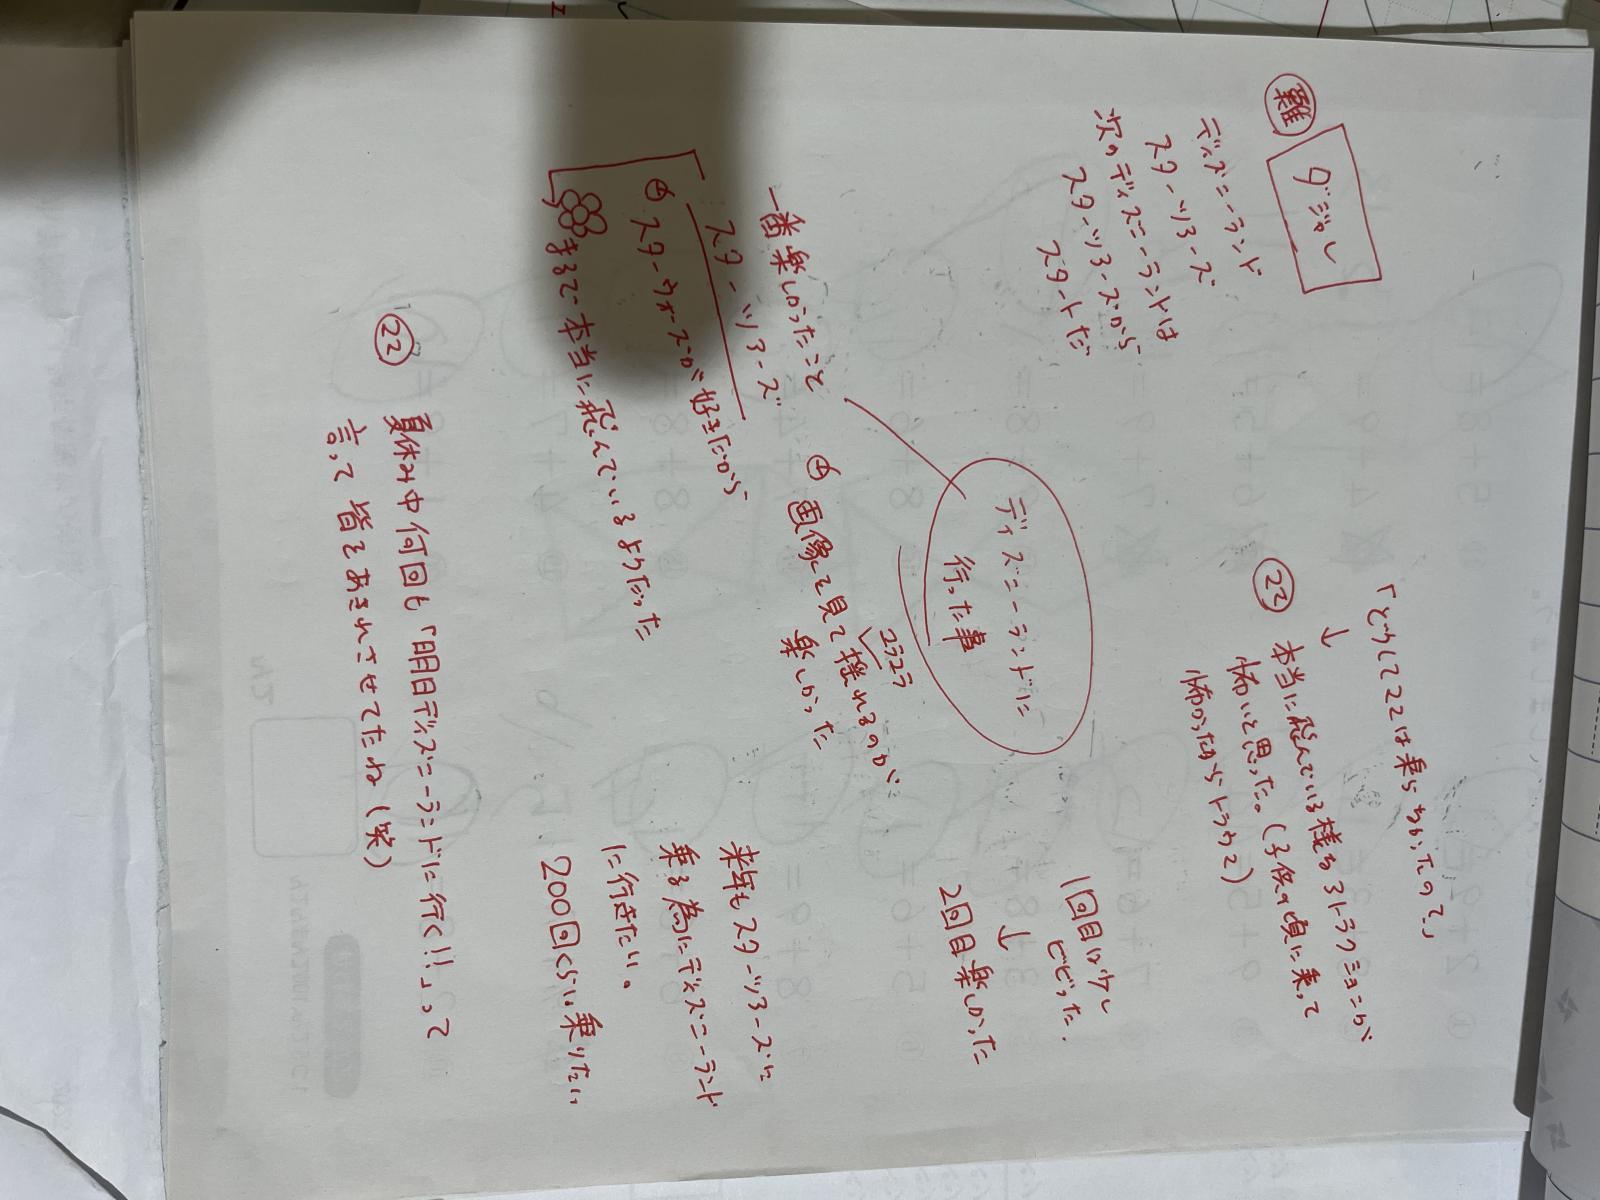 難
ダジャレ
ディズニーランド
スターツアーズ
次のディズニーランドは
スターツアーズから
スタートだ
「どうしてココは乗らなかったの？」
↓
23
本当に飛んでいる様なアトラクションが
怖いと思った。(子供の頃に乗って
怖かったからトラウマ)
ディズニーランドに
行った事
1回目は少し
ビビった.
↓
2回目楽しかった
一番楽しかったこと
スターツアーズ
スターウォーズが好きだから
まるで本当に飛んでいるようだった
画像で見て揺れるのが
楽しかった
来年もスターツアーズに
乗る為にディズニーランド
に行きたい。
200回くらい乗りたい
22
夏休み中何回も「明日ディズニーランドに行く!!」って
言って皆をあきれさせてたね(笑)